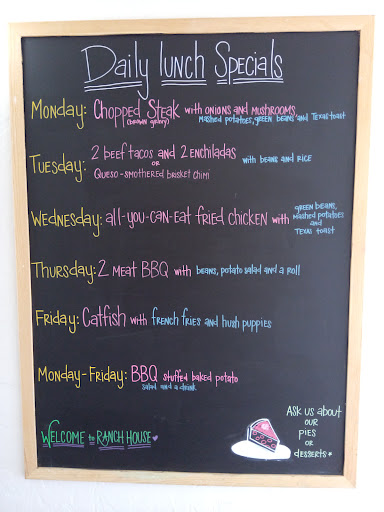 Daily lunch Specials
Monday: Chopped Steak with onions and mushrooms,
(brown gravy) mashed potatoes, green beans and Texas toast
Tuesday: 2 beef tacos and 2 enchiladas with beans and rice
or
Queso-smothered brisket chimi
Wednesday: all-you-can-eat fried chicken with green beans,
mashed potatoes
and
Texas toast
Thursday: 2 meat BBQ with beans, potato salad and a roll
Friday: Catfish with french fries and hush puppies
Monday-Friday: BBQ stuffed baked potato
salad and a drink
Welcome to Ranch House
Ask us about
our
pies
or
desserts*